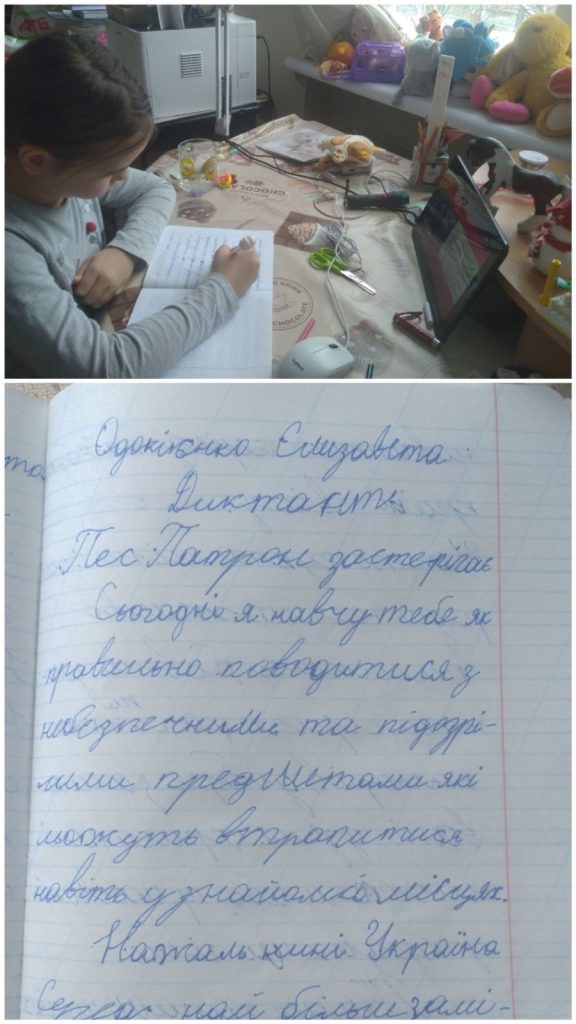 CHOCOLATE
DRINK
CHOCOLATE
та
Одокієнко Єлизавета
Диктанть
Пес Патрон застерігає
Сьогодні я навчу тебе як
правильно поводитися з
небезпечними та підозрі-
лими предметами які
можуть втрапитися
навіть у знайомих місцях.
Нажаль нині Україна
най більш замі-